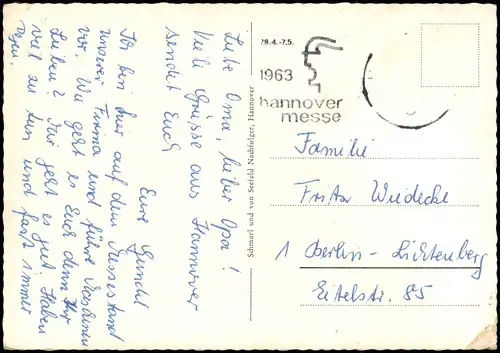 Liebe Oma, lieber Opa!
Viele Grüsse aus Hannover
sendet Euch
Eure Gundel
Ich bin hier auf dem Messestand
unserer Firma und führe Maschinen
vor. Wie geht es Euch denn Ihr
Lieben? Mir geht es gut. Haben
viel zu tun und fast immer
Regen.
Schmorl und von Seefeld Nachfolger, Hannover
28.4.-7.5.
1963
hannover
messe
Familie
Fritz Wiedecke
1 Berlin-Lichtenberg
Eitelstr. 85